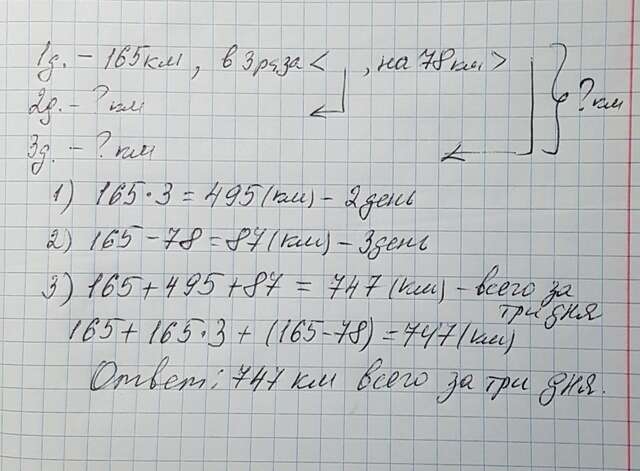 1д. - 165 км, в 3 раза <, на 78 км >
2д. - ? км
? км
3д. - ? км
1) 165·3 = 495 (км) - 2 день
2) 165 - 78 = 87 (км) - 3 день
3) 165 + 495 + 87 = 747 (км) - всего за
три дня
165 + 165·3 + (165 - 78) = 747 (км)
Ответ: 747 км всего за три дня.